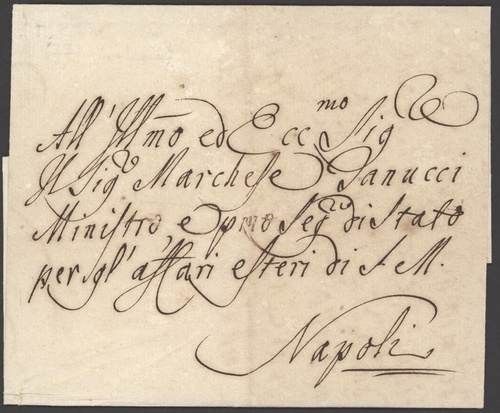 All' Illmo ed Eccmo Sigre
Il Sigr Marchese Tanucci
Ministro e pmo Segrio di Stato
per gl' affari esteri di S. M.
Napoli